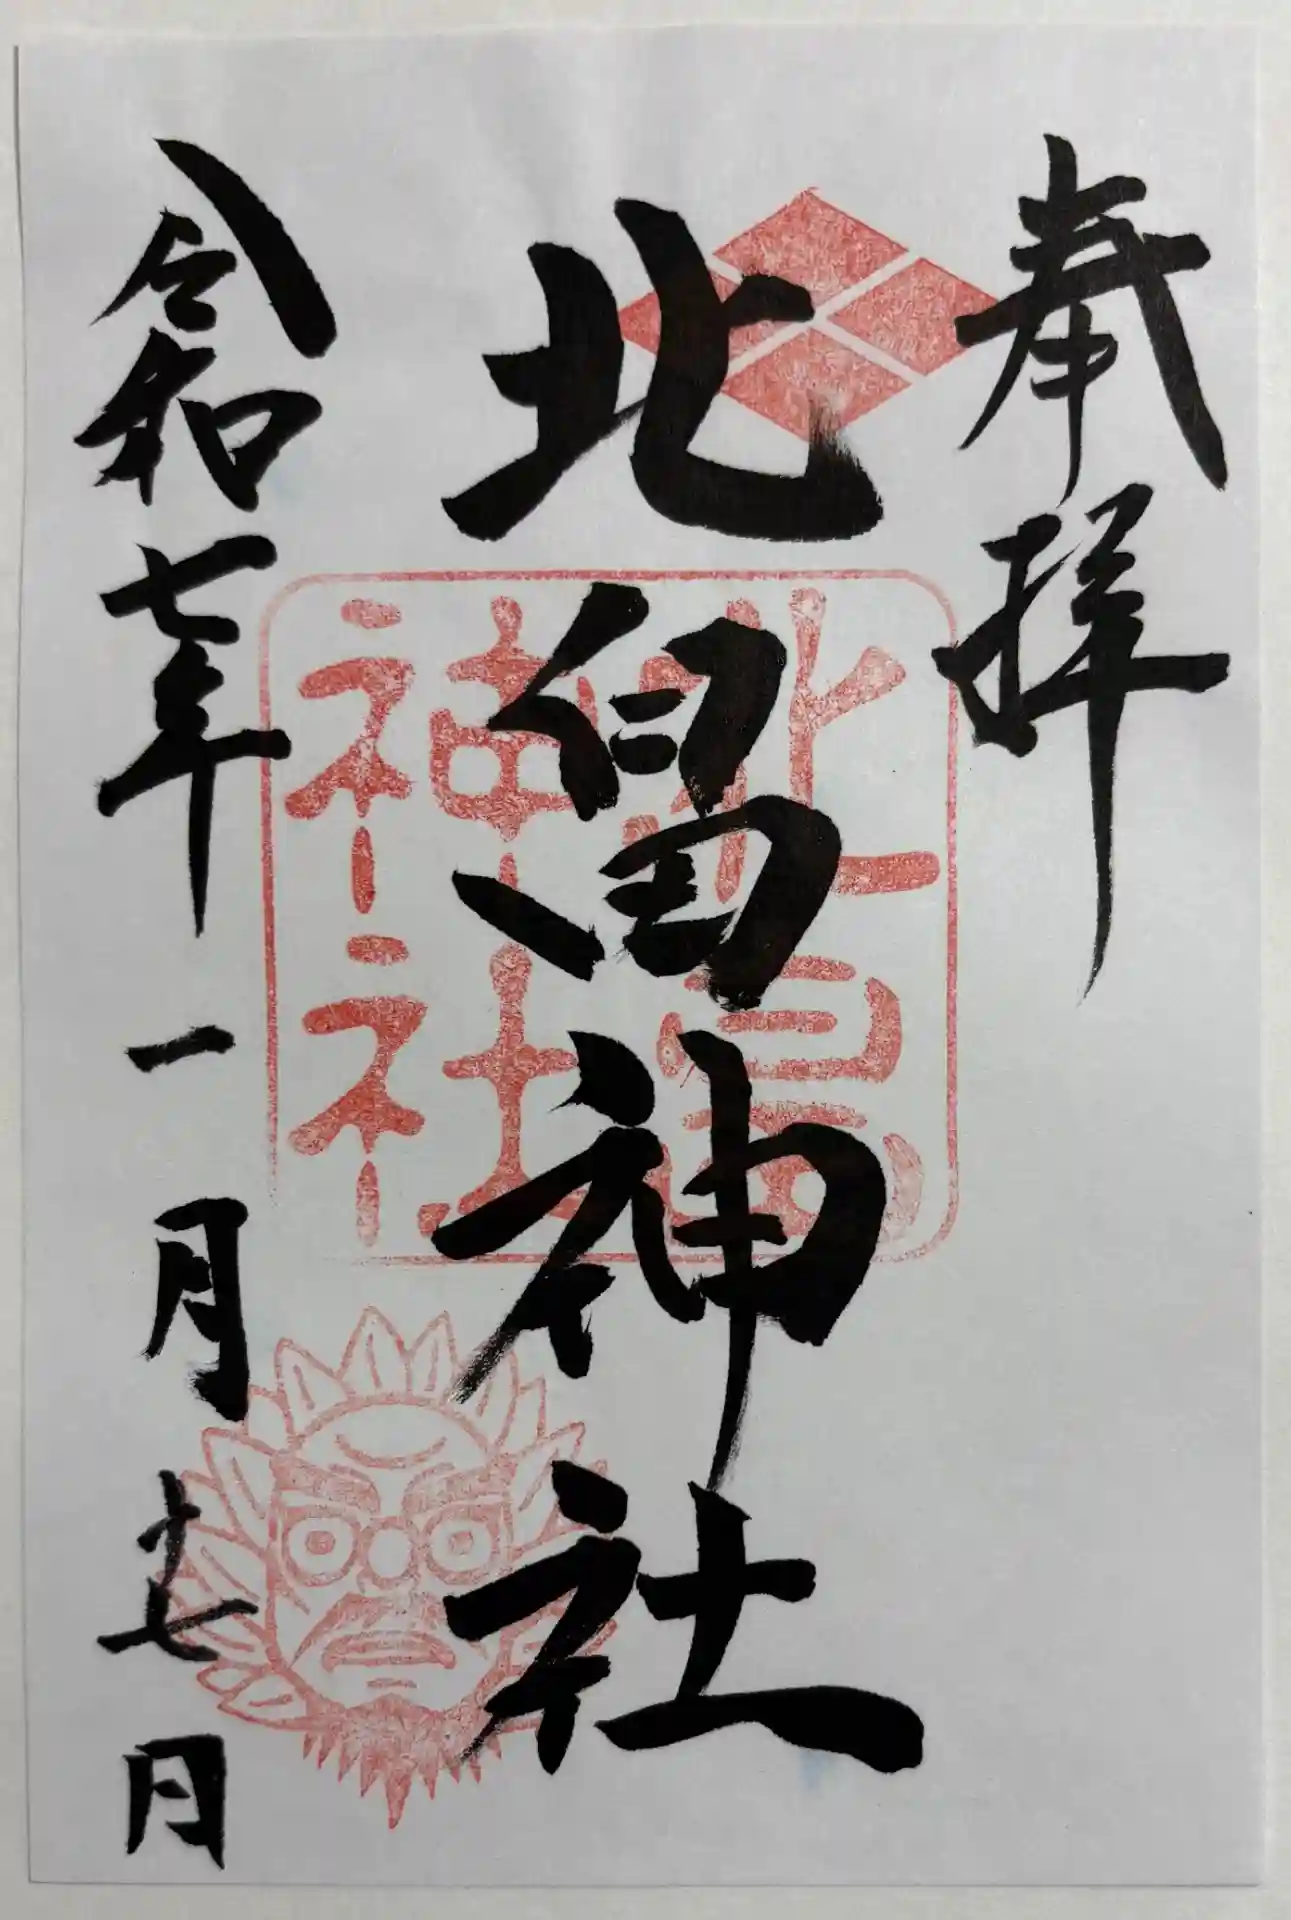 奉拝
北畠神社
北畠
神社
令和七年一月廿七日